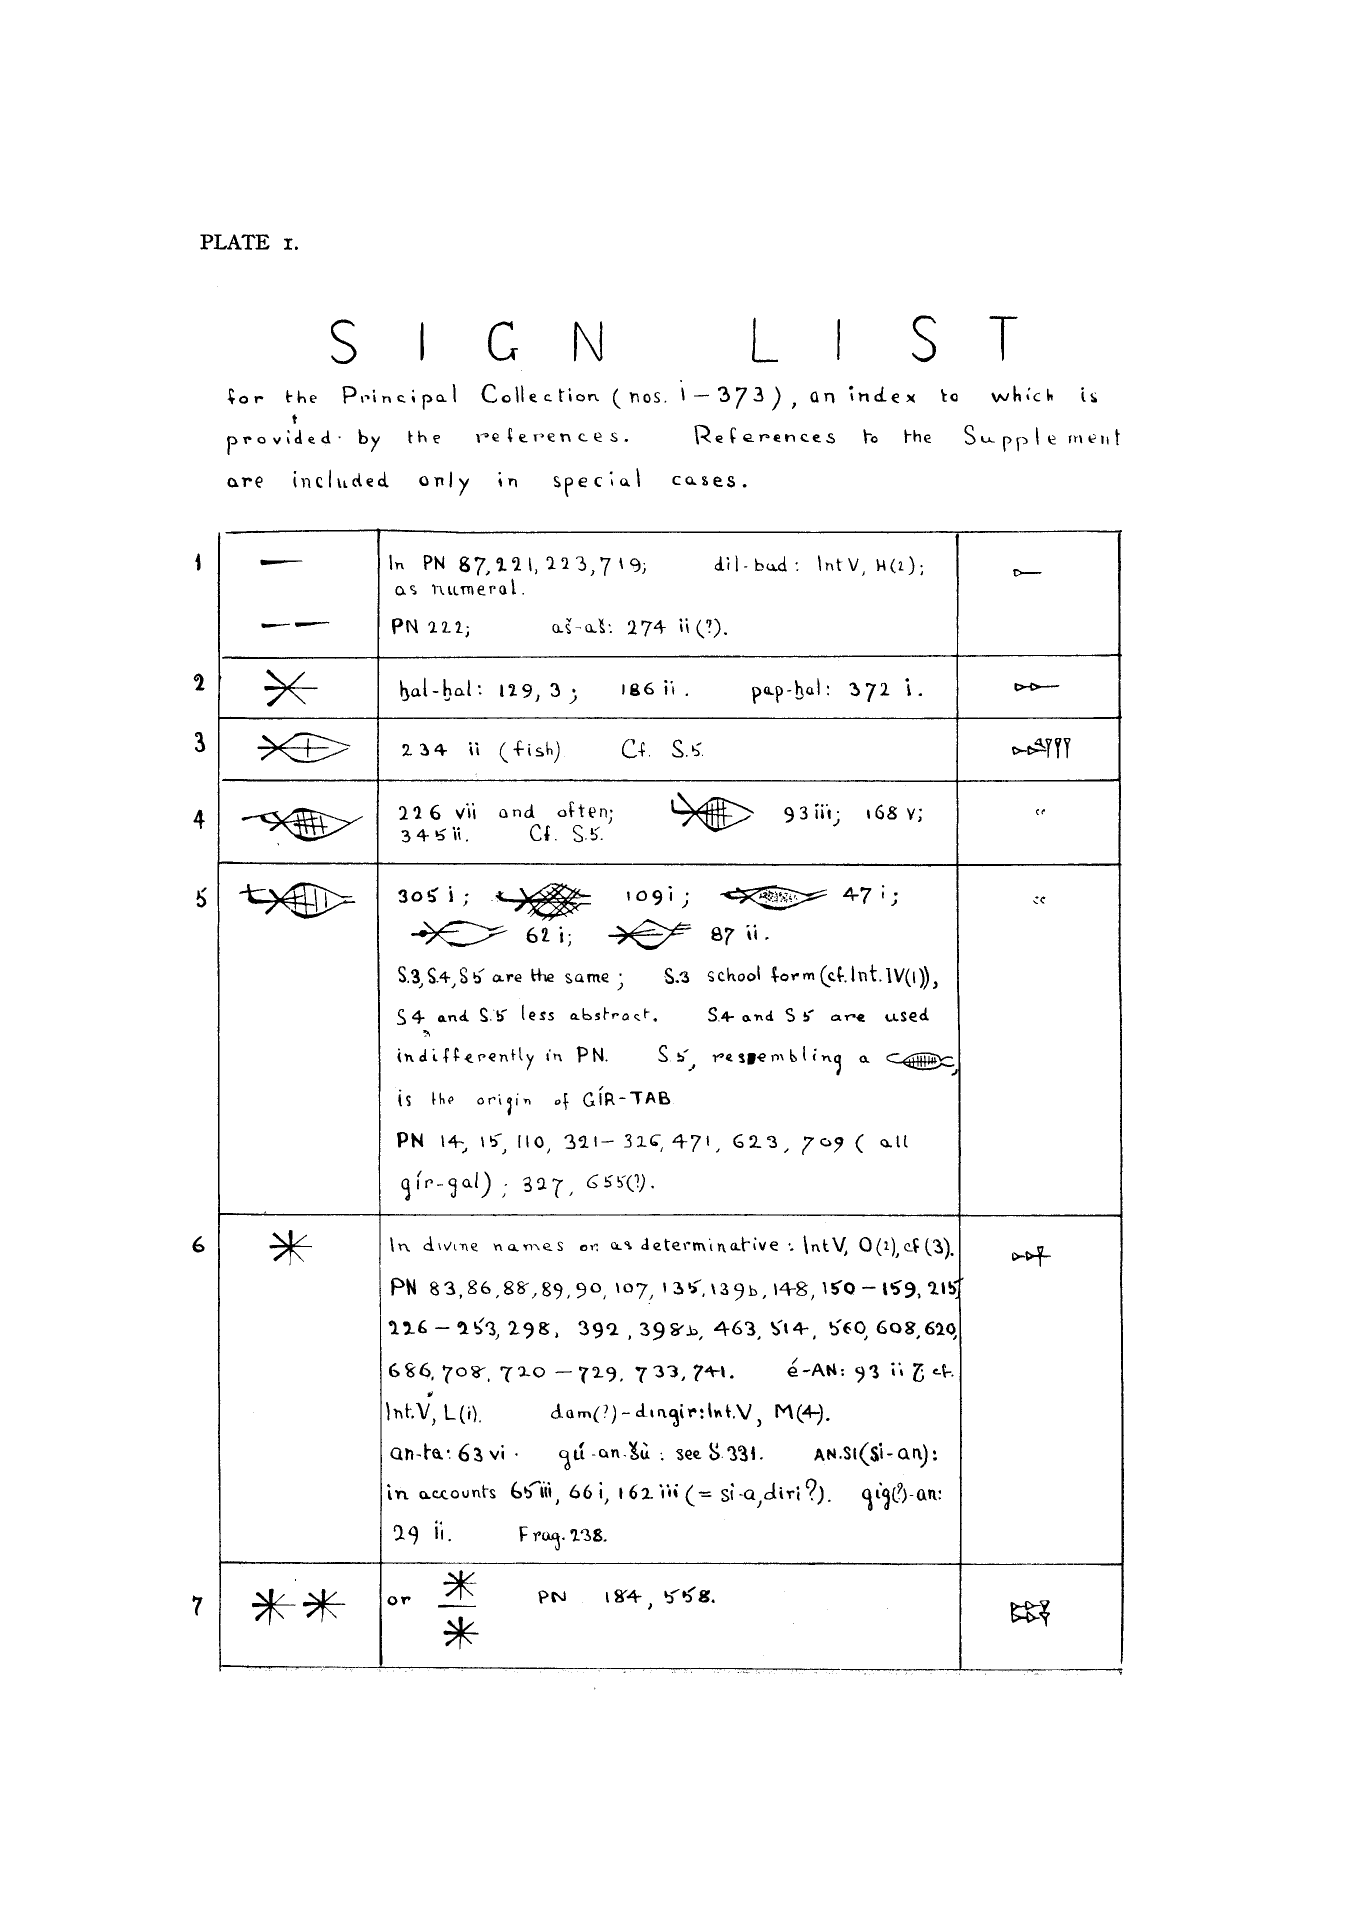 PLATE 1.
SIGN LIST
for the Principal Collection (nos. 1-373), an index to which is
provided by the references. References to the Supplement
are included only in special cases.
1 In PN 87, 221, 223, 719; dil-bad: Int V, H(2);
as numeral.
PN 222; aš-aš: 274 ii (?).
2 ḫal-ḫal: 129, 3; 186 ii. pap-ḫal: 372 i.
3 234 ii (fish) Cf. S.5.
4 226 vii and often; 93 iii; 168 v; "
345 ii. Cf. S.5.
5 305 i; 109 i; 47 i; "
62 i; 87 ii.
S.3, S.4, S5 are the same; S.3 school form (cf. Int. IV(1)),
S4 and S.5 less abstract. S.4 and S5 are used
indifferently in PN. S5, resembling a ,
is the origin of GÍR-TAB
PN 14, 15, 110, 321-326, 471, 623, 709 (all
gír-gal); 327, 655(?).
6 In divine names or as determinative: Int V, O(2), cf (3).
PN 83, 86, 88, 89, 90, 107, 135, 139b, 148, 150-159, 215,
226-253, 298, 392, 398b, 463, 514, 560, 608, 620,
686, 708, 720-729, 733, 741. é-AN: 93 ii 7; cf.
Int. V, L(i). dam(?)-dingir: Int. V, M(4).
an-ta: 63 vi. gú-an-šù: see S.331. AN.SI(si-an):
in accounts 65 iii, 66 i, 162 iii (= si-a, diri?). gig(?)-an:
29 ii. Frag. 238.
7 or PN 184, 558.